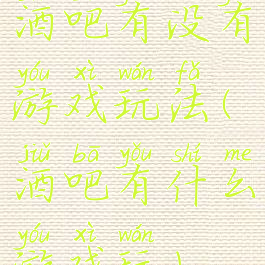 酒吧有没有
yóu xì wán fǎ
游戏玩法(
jiǔ bā yǒu shí me
酒吧有什么
yóu xì wán
游戏玩)